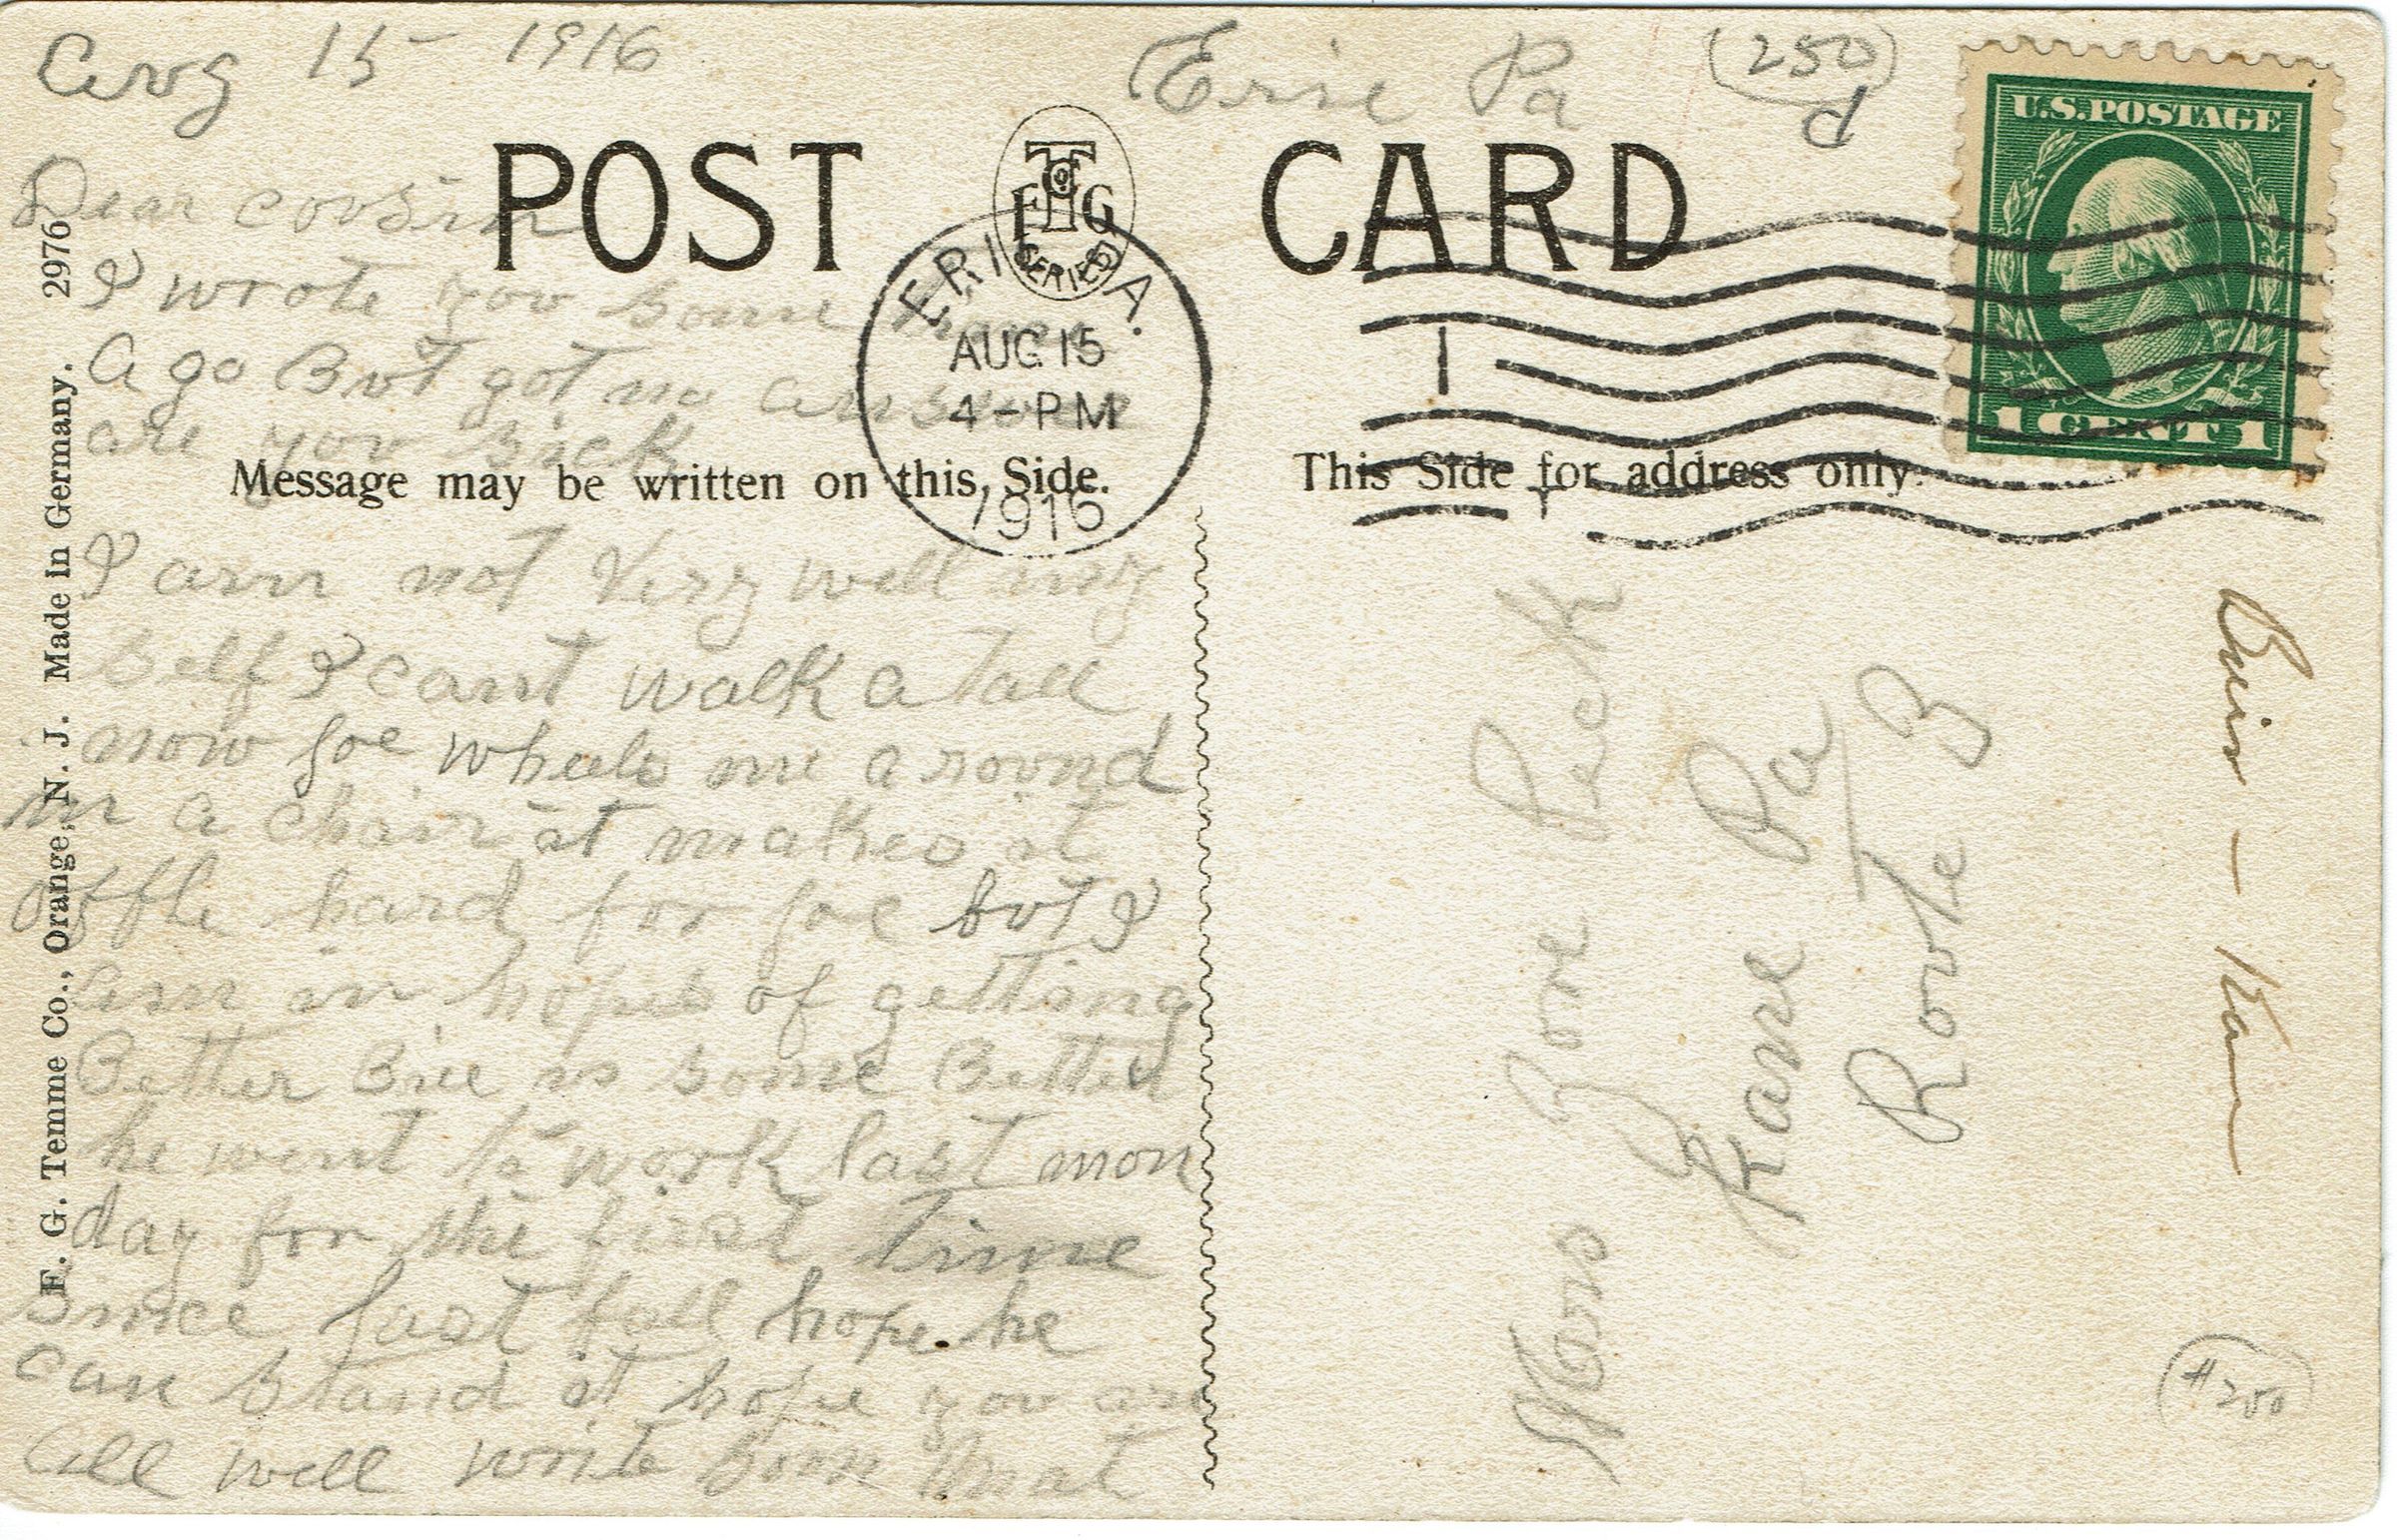 Aug 15 - 1916
Erie Pa
(250)
d
POST CARD
F T G
SERIES
U.S. POSTAGE
1 CENT 1
ERIE PA.
AUG 15
4 - PM
1916
Dear coosin
I wrote yov some time
A go Bvt got no
are yov sick
Message may be written on this Side.
This Side for address only.
I am not Very well my
Self I cant walk a Tall
now Joe wheels me a rovnd
in a chair it makes it
hard for Joe bvt I
am in hopes of getting
Better is some Better
he went to work last mon
day for the first Time
Since last fall hope he
can stand it hope yov are
all well write soon
F. G. Temme Co., Orange, N. J. Made in Germany. 2976
Mrs Peck
Kane Pa
Rovte 3
#250